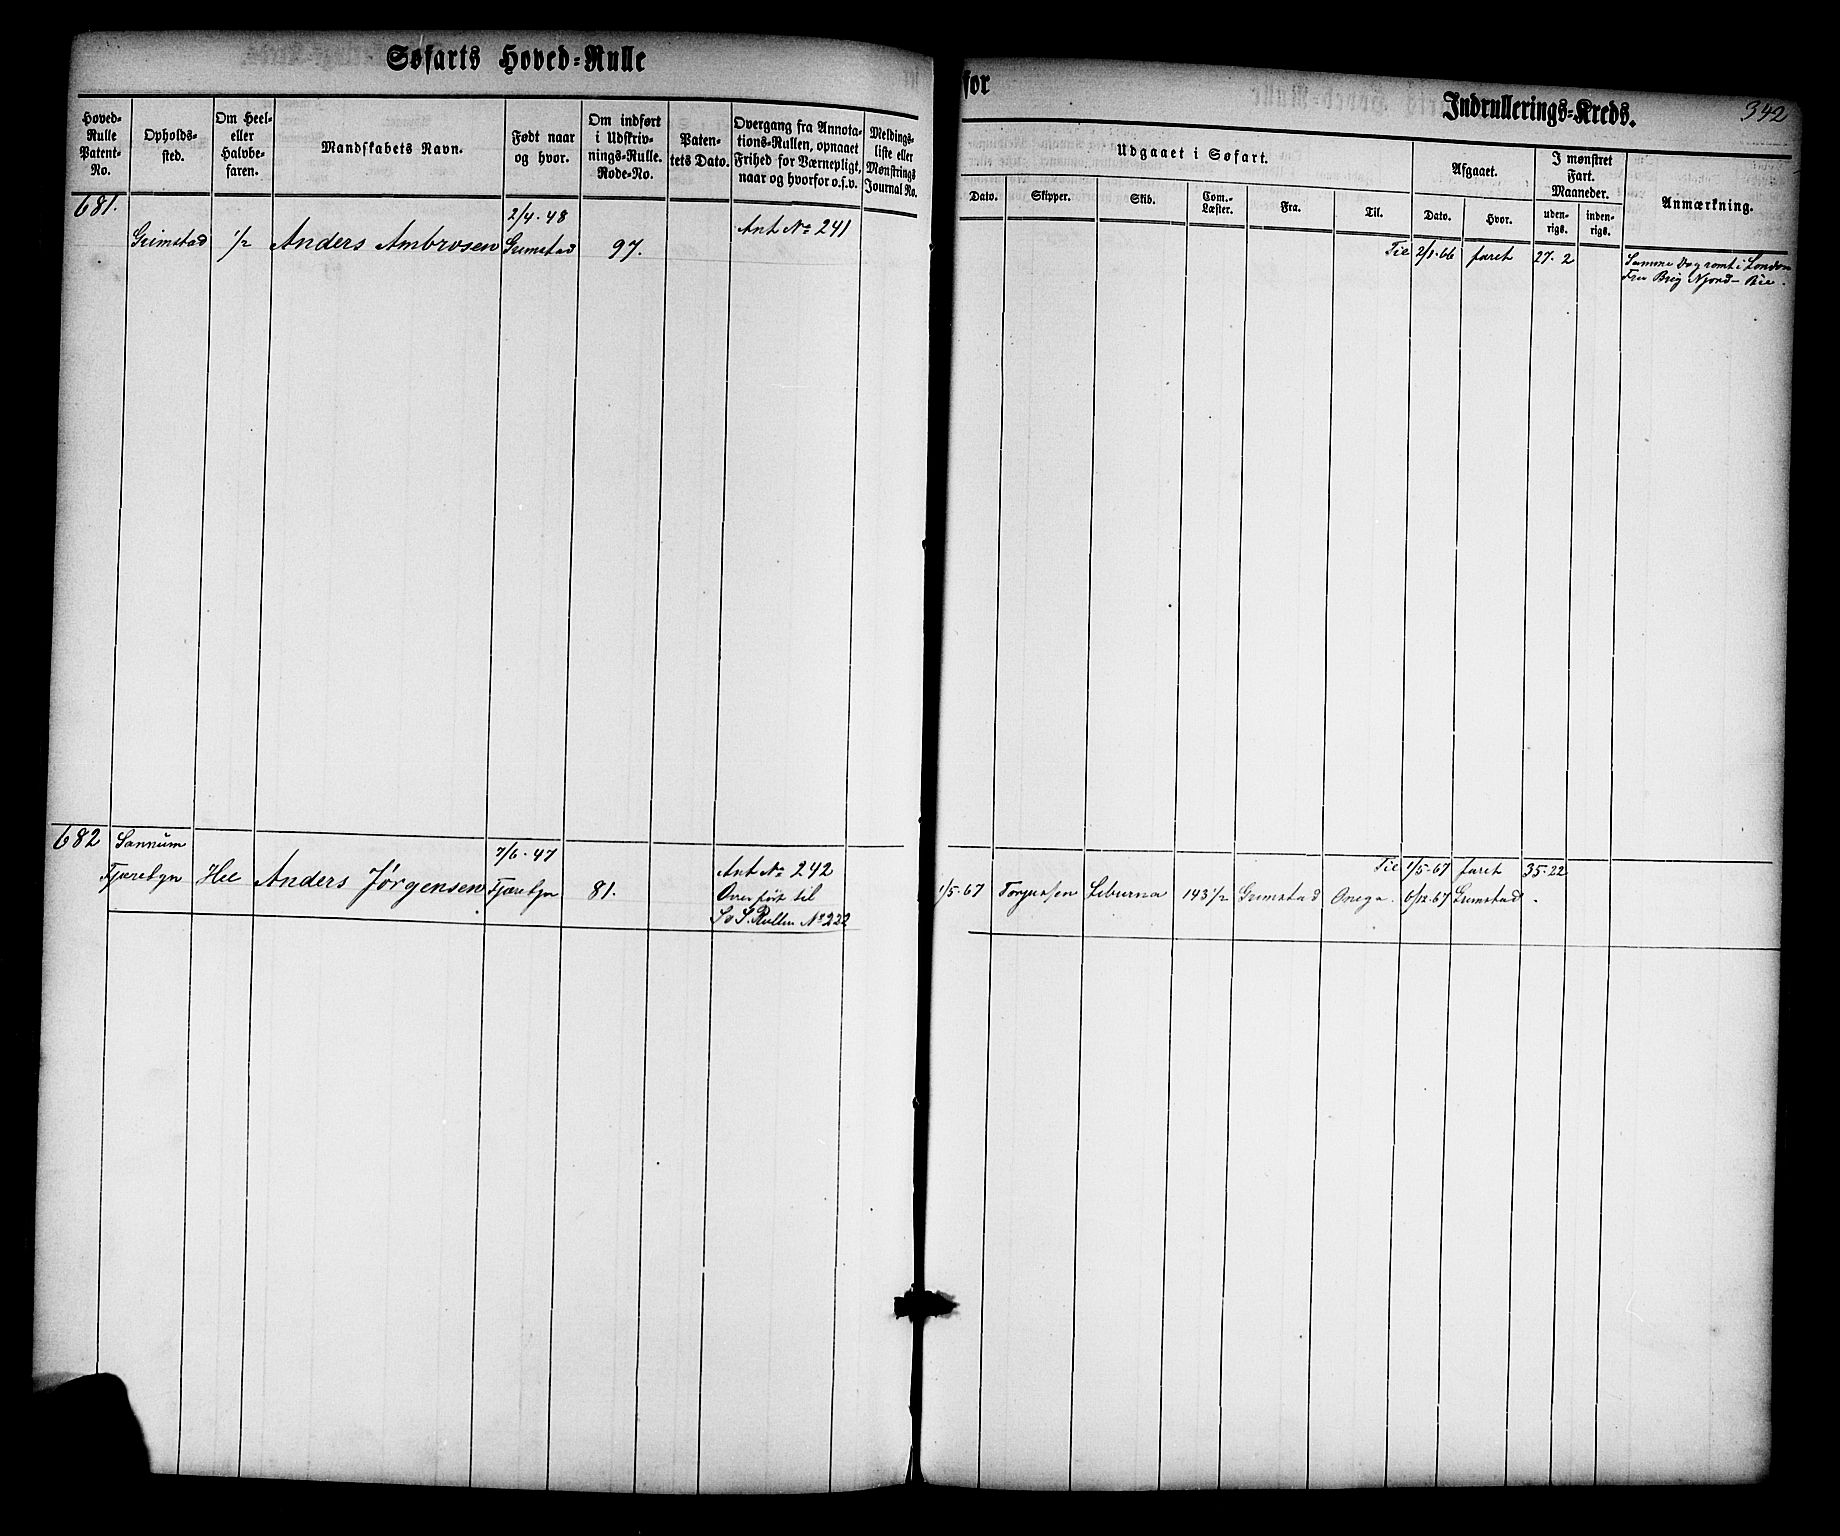 Søfarts Hoved-Rulle
Hoved-
Rulle
Patent-
No.
Opholds-
sted.
Om Heel-
eller
Halvbe-
faren.
Mandskabets Navn.
Født naar
og hvor.
Om indført
i Udskriv-
nings-Rulle.
Rode-No.
Paten-
tets Dato.
Overgang fra Annota-
tions-Rullen, opnaaet
Frihed for Værnepligt,
naar og hvorfor o.s.v.
Meldings-
liste eller
Mønstrings
Journal No.
681.
Grimstad
1/2
Anders Ambrosen
2/4·48
Grimstad
97.
Ant No 241
682
Sannum
Fjærebgn
Hel
Anders Jørgensen
7/6·47
Fjærebgn
81.
Ant No 242
Overført til
S. Rullen No 222
for
Indrullerings-Kreds.
342
Udgaaet i Søfart.
Afgaaet.
I mønstret
Fart.
Maaneder.
Anmærkning.
Dato.
Skipper.
Skib.
Com.-
Læster.
Fra.
Til.
Dato.
Hvor.
uden-
rigs.
inden-
rigs.
Til 2/1·66 faret 27·2
Samme Dag romt i London
Fra Brig Njord
Til 1/5·67 faret 35·22
1/5·67 Torjussen Liburna 143 1/2 Grimstad Onega. 6/12·67 Grimstad